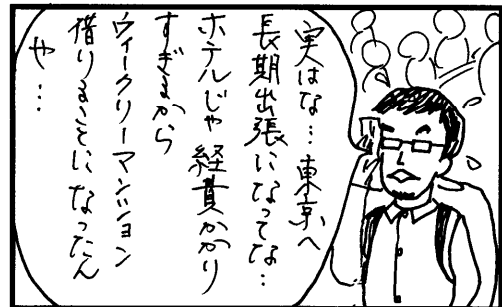 実はな…東京へ
長期出張になってな…
ホテルじゃ経費かかり
すぎるから
ウィークリーマンション
借りることになったん
や…